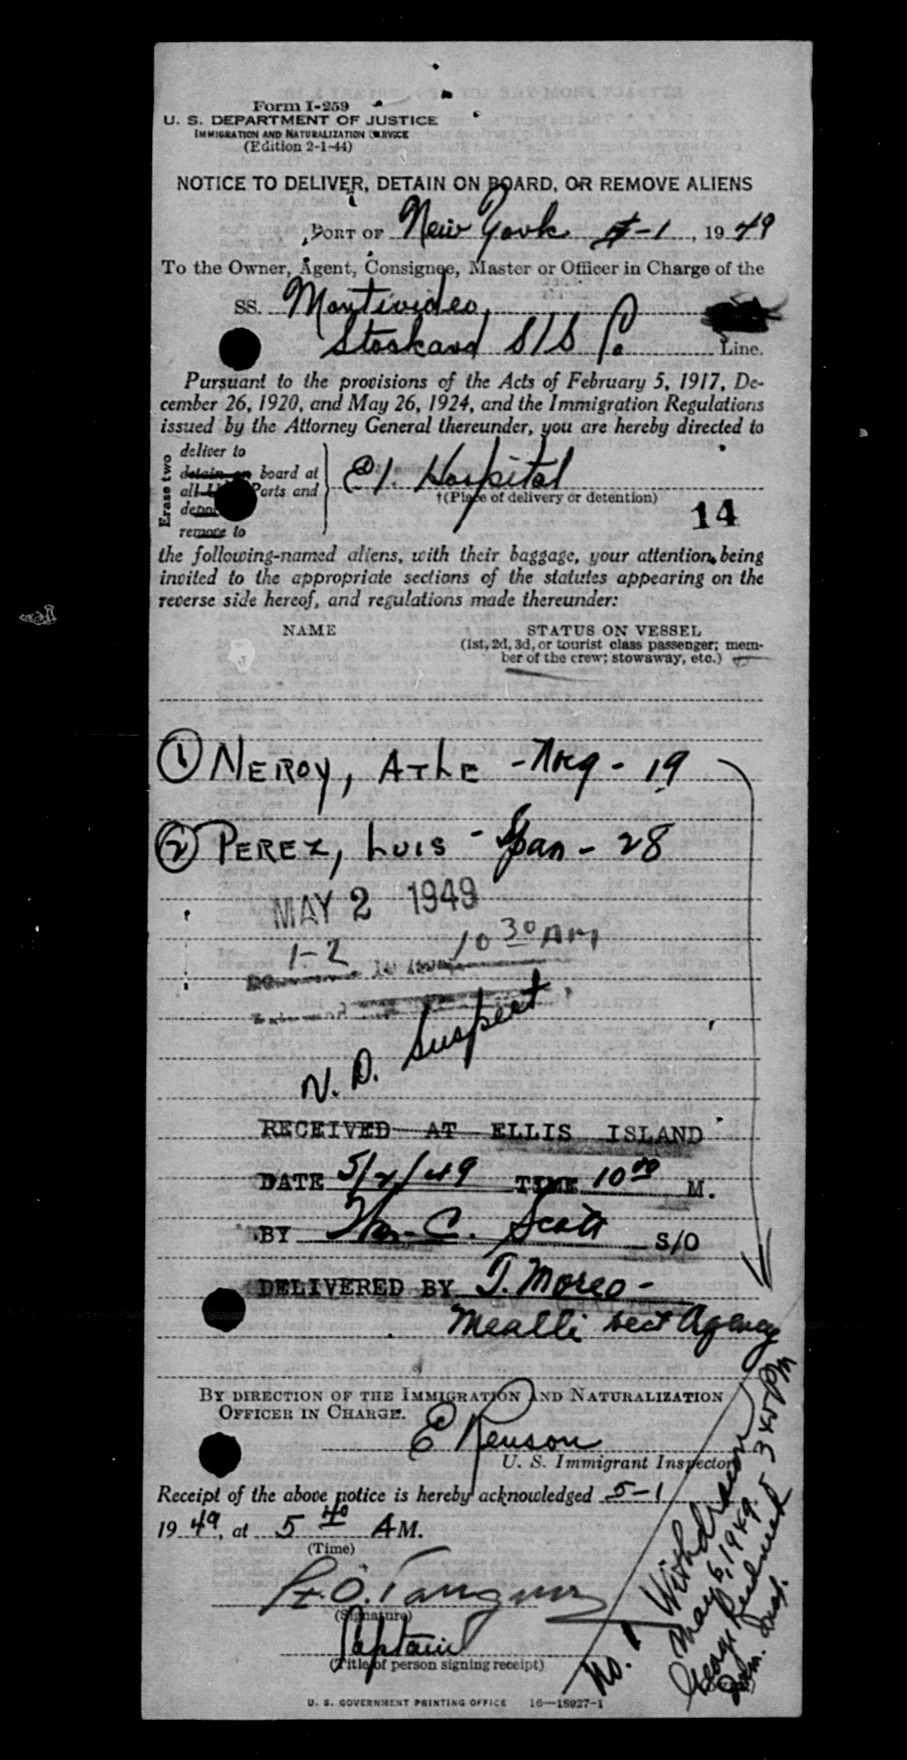 Form I-259
U. S. DEPARTMENT OF JUSTICE
IMMIGRATION AND NATURALIZATION SERVICE
(Edition 2-1-44)
NOTICE TO DELIVER, DETAIN ON BOARD, OR REMOVE ALIENS
PORT OF New York 5-1, 1949
To the Owner, Agent, Consignee, Master or Officer in Charge of the
SS. Montivideo
Stockard S/S Co Line.
Pursuant to the provisions of the Acts of February 5, 1917, De-
cember 26, 1920, and May 26, 1924, and the Immigration Regulations
issued by the Attorney General thereunder, you are hereby directed to
Erase two
deliver to
detain on board at
all Ports and
remove to
E I. Hospital
†(Place of delivery or detention)
14
the following-named aliens, with their baggage, your attention being
invited to the appropriate sections of the statutes appearing on the
reverse side hereof, and regulations made thereunder:
NAME
STATUS ON VESSEL
(1st, 2d, 3d, or tourist class passenger; mem-
ber of the crew; stowaway, etc.)
① NEROY, ATLE - Noeg - 19
② PEREZ, LUIS - Span - 28
MAY 2 1949
1-2 10 30 AM
V. D. Suspect
RECEIVED AT ELLIS ISLAND
DATE 5/2/49 TIME 10 00 M.
BY Wm. C. Scott S/O
DELIVERED BY T. Moreo -
Mealli Agency
BY DIRECTION OF THE IMMIGRATION AND NATURALIZATION
OFFICER IN CHARGE.
E Renson
U. S. Immigrant Inspector
Receipt of the above notice is hereby acknowledged 5-1
1949, at 5 40 AM.
(Time)
(Signature)
Captain
(Title of person signing receipt)
No. 1 Withdrawn
May 6, 1949. 3 45 PM
George
Imm. Insp.
U. S. GOVERNMENT PRINTING OFFICE 16—18927-1